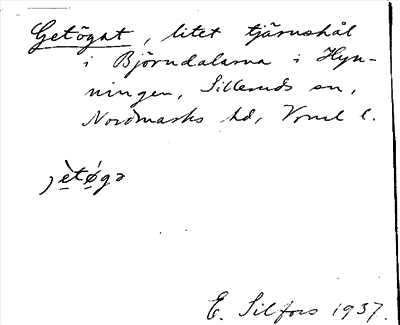 Getögat, litet tjärnshål
i Björndalarna i Hyn-
ningen, Silleruds sn,
Nordmarks hd, Vrml l.
jètö́gə
E. Silfors 1937.